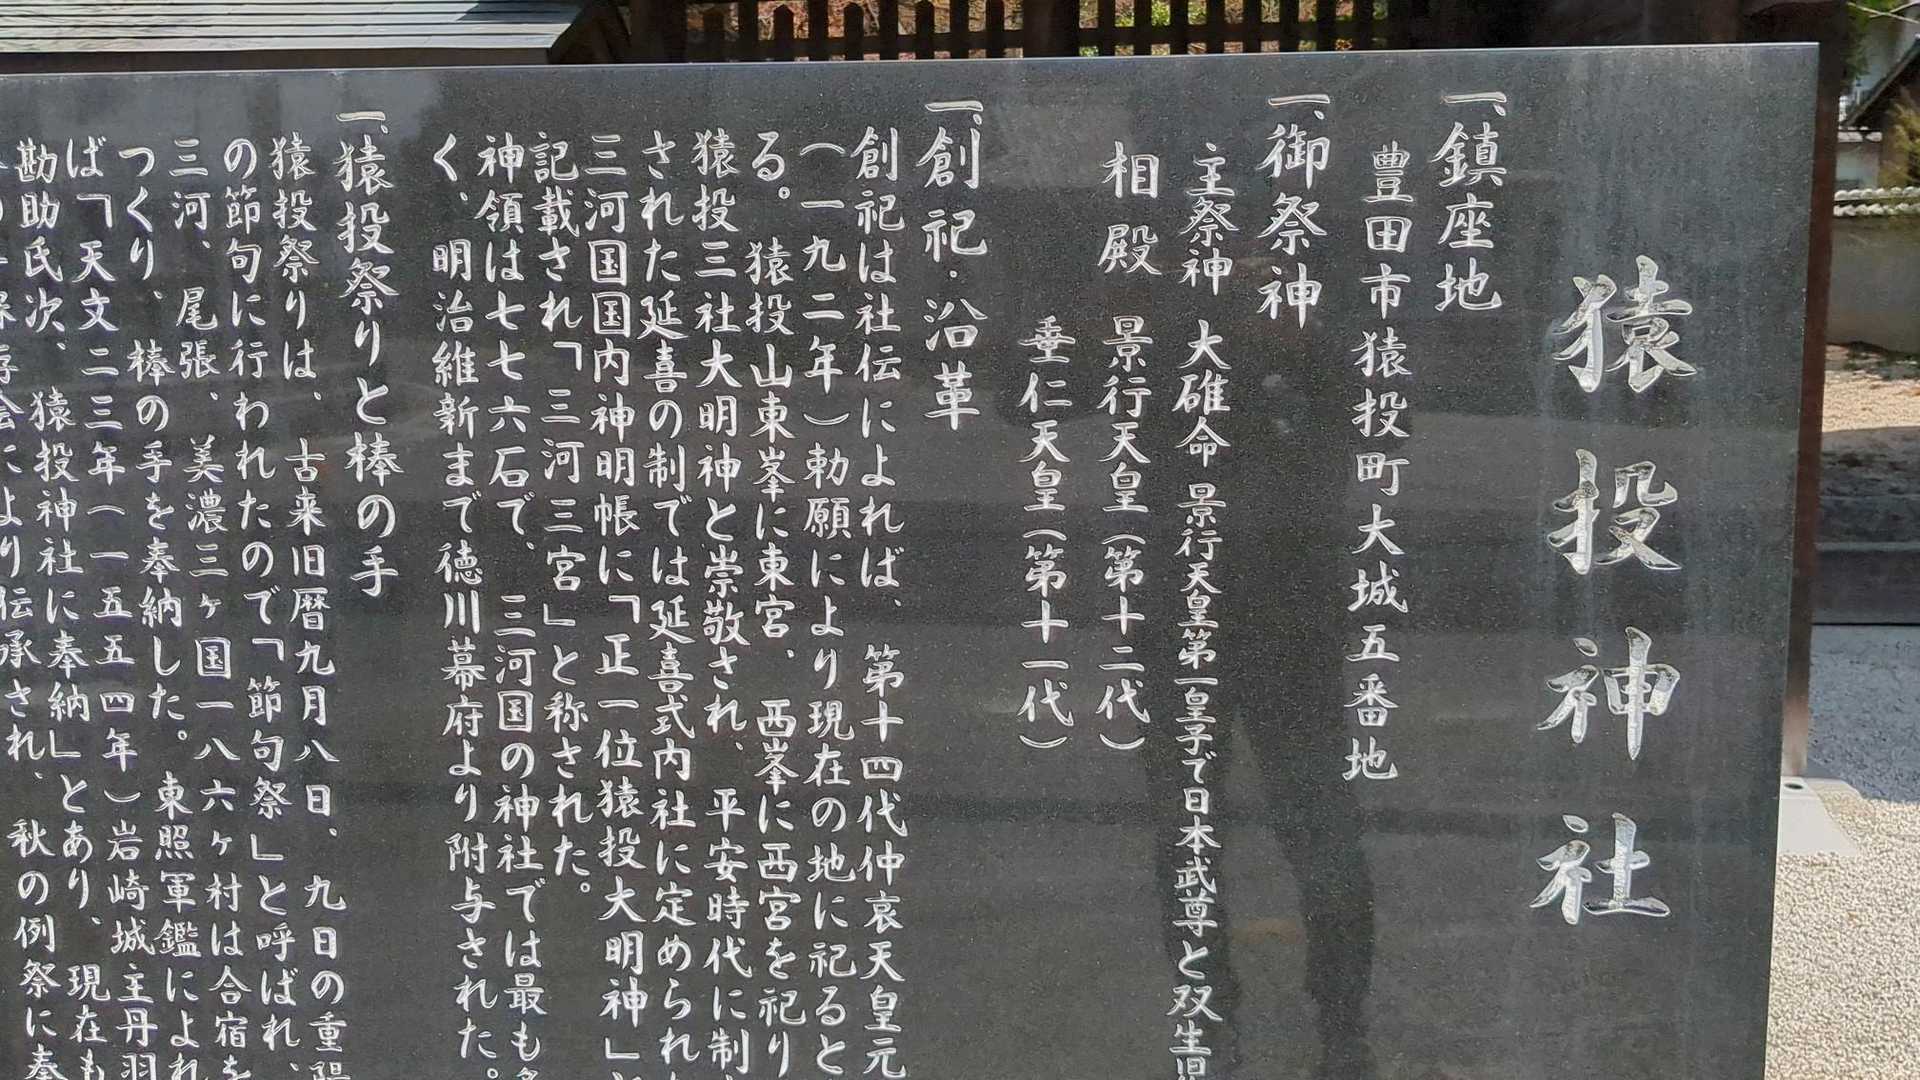 猿投神社
一、鎮座地
豊田市猿投町大城五番地
一、御祭神
主祭神 大碓命 景行天皇第一皇子で日本武尊と双生
相殿 景行天皇（第十二代）
垂仁天皇（第十一代）
一、創祀・沿革
創祀は社伝によれば、第十四代仲哀天皇元
（一九二年）勅願により現在の地に祀ると
る。猿投山東峯に東宮、西峯に西宮を祀り
猿投三社大明神と崇敬され、平安時代に制
された延喜の制では延喜式内社に定められ
三河国国内神明帳に「正一位猿投大明神」
記載され「三河三宮」と称された。
神領は七七六石で、三河国の神社では最も
く、明治維新まで徳川幕府より附与された。
一、猿投祭りと棒の手
猿投祭りは、古来旧暦九月八日、九日の重陽
の節句に行われたので「節句祭」と呼ばれ、
三河、尾張、美濃三ヶ国一八六ヶ村は合宿を
つくり、棒の手を奉納した。東照軍鑑によれ
ば「天文二三年（一五五四年）岩崎城主丹羽
勘助氏次、猿投神社に奉納」とあり、現在も
保存会により伝承され、秋の例祭に奉